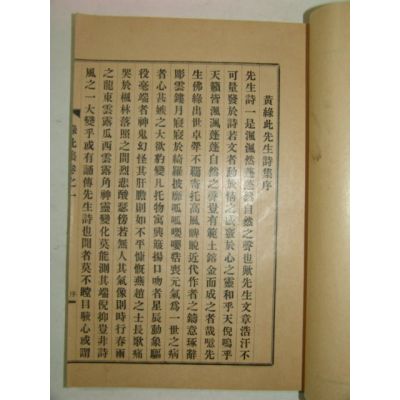 黃綠此先生詩集序
先生詩一是渢渢然蓬蓬然自然之聲也歟先生文章浩汗不
可量發於詩若文者動於情之感衷於心之靈和乎天倪鳴乎
天籟皆渢渢蓬蓬自然之聲豈有範土鎔金而成之者哉噫先
生佛綠出世卓犖不羈寄托高風睥睨近代作者之鑄意琢辭
彫雲鏤月寢寢於綺羅披靡呱呱嚶嚶喪元氣爲一世之病
者心甚嫉之大欲豹變凡托物寓興簸揚口吻者星辰動象驅
役毫端者神鬼幻怪其肝膽則如不平慷慨燕趙之士長歌痛
哭於楓林落照之間烈悲酸瑟傍若無人其氣像則時行春雨
之龍東雲露瓜西雲露角神靈變化莫能測其端倪抑豈非詩
風之一大變乎或有誦傳先生詩也聞者莫不瞠目駴心或謂
綠此集卷之一
序